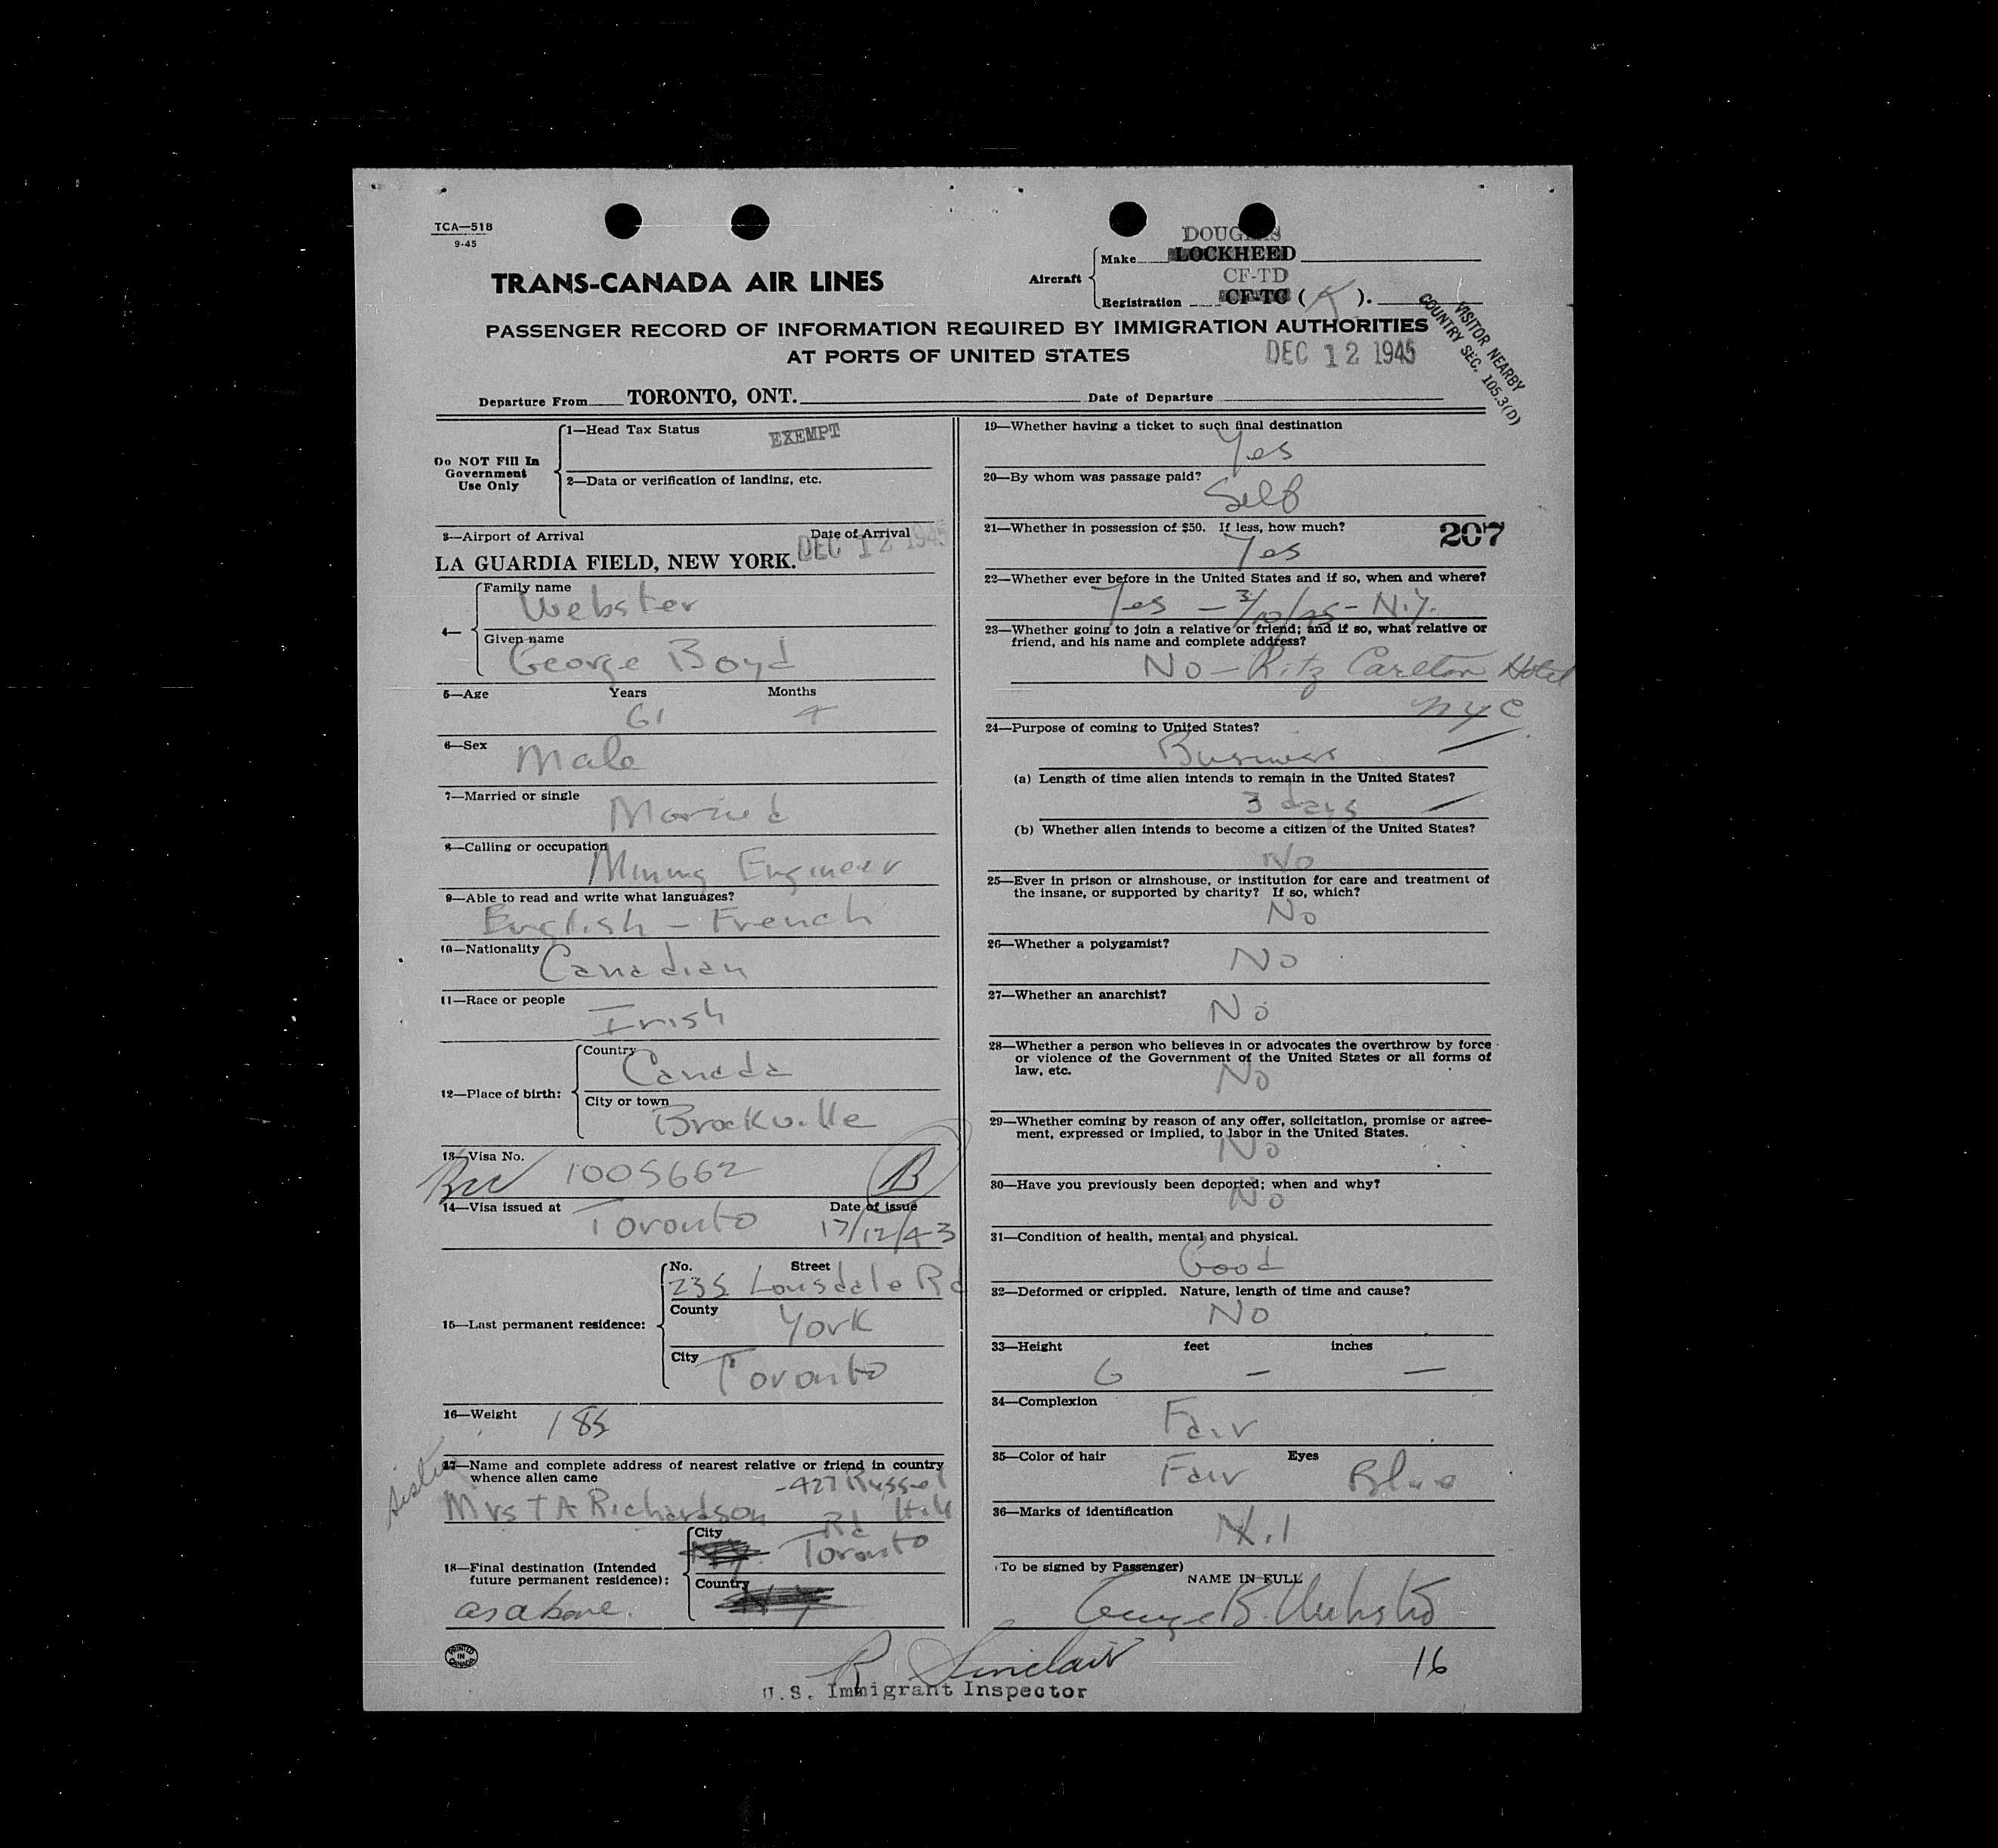 TCA—518
9-45
TRANS-CANADA AIR LINES
DOUGLAS
Aircraft
Make LOCKHEED
CF-TD
Registration CF-TC ( ).
PASSENGER RECORD OF INFORMATION REQUIRED BY IMMIGRATION AUTHORITIES
AT PORTS OF UNITED STATES
DEC 12 1945
VISITOR NEARBY
COUNTRY SEC. 105.3(D)
Departure From TORONTO, ONT. Date of Departure
Do NOT Fill In
Government
Use Only
1—Head Tax Status EXEMPT
2—Data or verification of landing, etc.
3—Airport of Arrival Date of Arrival
LA GUARDIA FIELD, NEW YORK. DEC 12 1945
4—
Family name
Webster
Given name
George Boyd
5—Age Years Months
61 4
6—Sex
Male
7—Married or single
Married
8—Calling or occupation
Mining Engineer
9—Able to read and write what languages?
English – French
10—Nationality
Canadian
11—Race or people
Irish
12—Place of birth:
Country
Canada
City or town
Brockville
13—Visa No.
1005662 B
14—Visa issued at Date of issue
Toronto 17/12/43
15—Last permanent residence:
No. Street
235 Lonsdale Rd
County
York
City
Toronto
16—Weight 185
17—Name and complete address of nearest relative or friend in country
whence alien came
sister
-427 Russel
Mrs T A Richardson Hill
Rd
18—Final destination (Intended
future permanent residence):
City
Toronto
Country
as above.
PRINTED IN CANADA
19—Whether having a ticket to such final destination
Yes
20—By whom was passage paid?
Self
21—Whether in possession of $50. If less, how much?
Yes
207
22—Whether ever before in the United States and if so, when and where?
Yes – 3/10/45 – N.Y.
23—Whether going to join a relative or friend; and if so, what relative or
friend, and his name and complete address?
No – Ritz Carlton Hotel
NYC
24—Purpose of coming to United States?
Business
(a) Length of time alien intends to remain in the United States?
3 days
(b) Whether alien intends to become a citizen of the United States?
No
25—Ever in prison or almshouse, or institution for care and treatment of
the insane, or supported by charity? If so, which?
No
26—Whether a polygamist?
No
27—Whether an anarchist?
No
28—Whether a person who believes in or advocates the overthrow by force
or violence of the Government of the United States or all forms of
law, etc.
No
29—Whether coming by reason of any offer, solicitation, promise or agree-
ment, expressed or implied, to labor in the United States.
No
30—Have you previously been deported; when and why?
No
31—Condition of health, mental and physical.
Good
32—Deformed or crippled. Nature, length of time and cause?
No
33—Height feet inches
6 – –
34—Complexion
Fair
35—Color of hair Eyes
Fair Blue
36—Marks of identification
N.I
(To be signed by Passenger)
NAME IN FULL
George B. Webster
R Sinclair
U.S. Immigrant Inspector
16